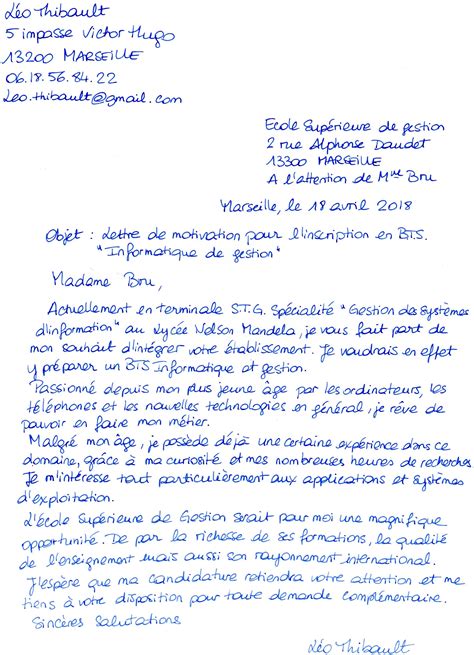 Léo Thibault
5 impasse Victor Hugo
13200 MARSEILLE
06.18.56.84.22
Leo.thibault@gmail.com
Ecole Supérieure de gestion
2 rue Alphonse Daudet
13300 MARSEILLE
A l'attention de Mme Bru
Marseille, le 18 avril 2018
Objet : Lettre de motivation pour l'inscription en BTS.
"Informatique de gestion"
Madame Bru,
Actuellement en terminale S.T.G. Spécialité "Gestion des Systèmes
d'information" au Lycée Nelson Mandela, je vous fait part de
mon souhait d'intégrer votre établissement. Je voudrais en effet
y préparer un BTS Informatique et gestion.
Passionné depuis mon plus jeune âge par les ordinateurs, les
téléphones et les nouvelles technologies en général, je rêve de
pouvoir en faire mon métier.
Malgré mon âge, je possède déjà une certaine expérience dans ce
domaine, grâce à ma curiosité et mes nombreuses heures de recherches
Je m'intéresse tout particulièrement aux applications et systèmes
d'exploitation.
L'École Supérieure de Gestion serait pour moi une magnifique
opportunité. De par la richesse de ses formations, la qualité
de l'enseignement mais aussi son rayonnement international.
J'espère que ma candidature retiendra votre attention et me
tiens à votre disposition pour toute demande complémentaire.
Sincères salutations
Léo Thibault